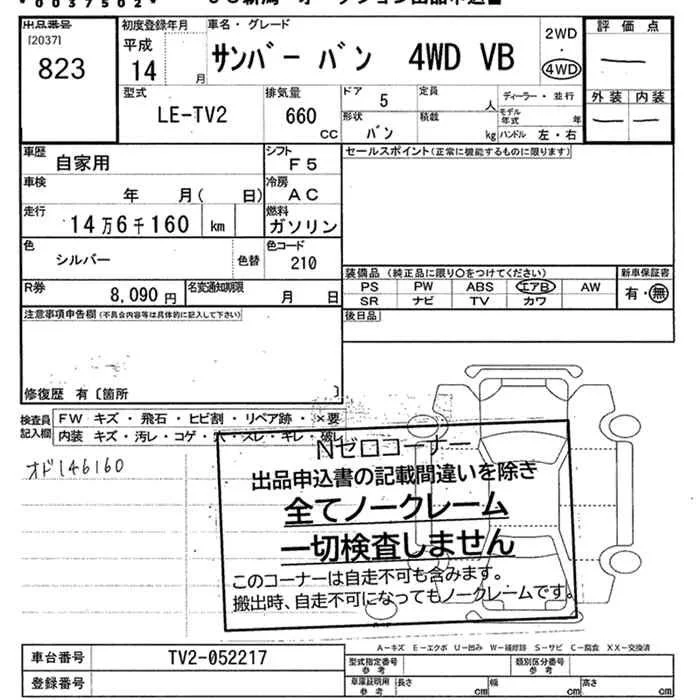 *0037502*
出品番号
[2037]
823
初度登録年月
平成
14 月
車名・グレード
サンバー バン 4WD VB
2WD
・
4WD
評価点
—
外装 内装
— —
型式
LE-TV2
排気量
660
CC
ドア 5
定員 人
ディーラー・並行
形状 バン
積載 kg
モデル年式 年
ハンドル 左・右
車歴
自家用
シフト
F5
車検
年 月( 日)
冷房
AC
走行
14万6千160 km
燃料
ガソリン
色
シルバー
色替
色コード
210
R券
8,090 円
名変通知期限
月 日
注意事項申告欄(不具合内容等は具体的に記入して下さい)
修復歴 有〔箇所 〕
セールスポイント(正常に機能するものに限ります)
装備品 (純正品に限り○をつけてください)
新車保証書
PS PW ABS エアB AW
有・無
SR ナビ TV カワ
後日品
検査員
記入欄
FW キズ・飛石・ヒビ割・リペア跡・×要
内装 キズ・汚レ・コゲ・穴・スレ・キレ・破レ
オド146160
Nゼロコーナー
出品申込書の記載間違いを除き
全てノークレーム
一切検査しません
このコーナーは自走不可も含みます。
搬出時、自走不可になってもノークレームです。
A-キズ E-エクボ U-凹み W-補修跡 S-サビ C-腐食 XX-交換済
車台番号
TV2-052217
登録番号
型式指定番号
参考
類別区分番号
参考
車庫証明用
参考
長さ cm
幅 cm
高さ cm